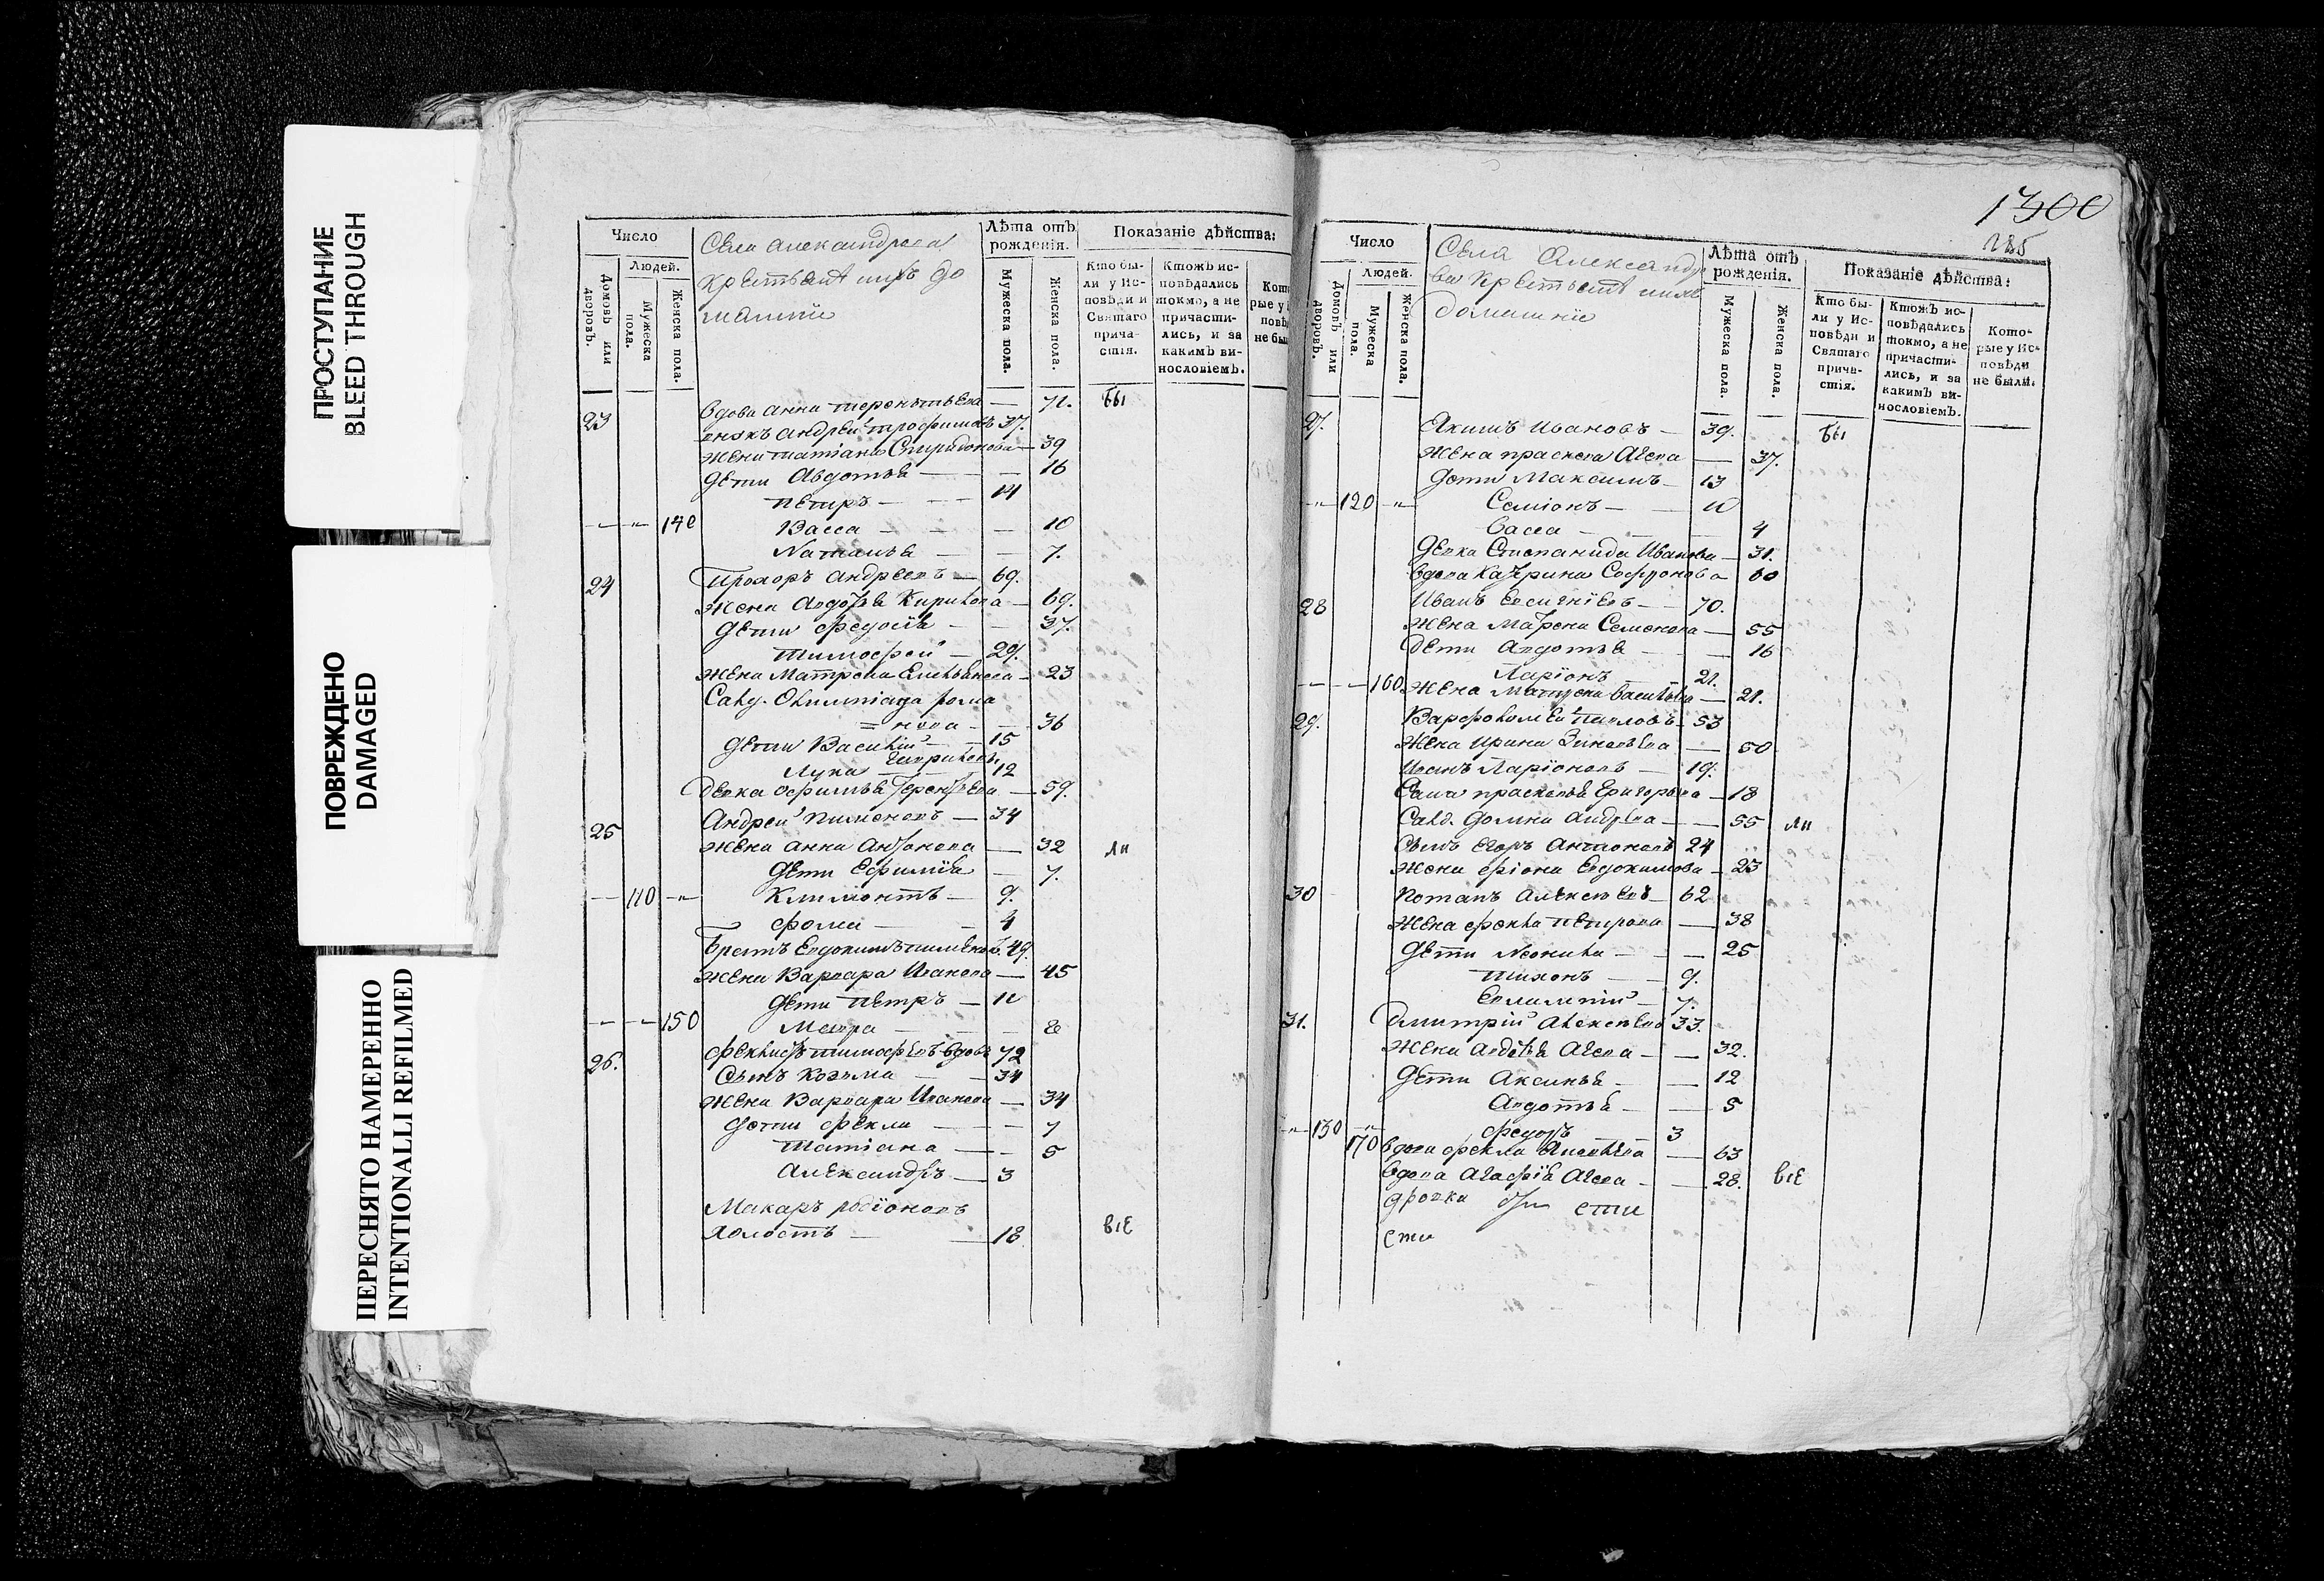 ПРОСТУПАНИЕ
BLEED THROUGH
ПОВРЕЖДЕНО
DAMAGED
ПЕРЕСНЯТО НАМЕРЕННО
INTENTIONALLI REFILMED
Число
Людей.
Домовъ или дворовъ.
Мужеска пола.
Женска пола.
Села александрова
крестьяне ихъ до
машнiи
Лѣта отъ рожденія.
Мужеска пола.
Женска пола.
Показаніе дѣйства:
Кто бы-
ли у Ис-
повѣди и
Святаго
прича-
стія.
Ктожъ ис-
повѣдались
токмо, а не
причасти-
лись, и за
какимъ ви-
нословіемъ.
вдова анна терентьева — 71. бы
23 внукъ андрей трофимовъ 37.
жена татiана Спиридонова — 39
дети Авдотья — 16
петръ — 14
140 Васса — 10
Наталья — 7.
24 Прохоръ андреевъ — 69.
жена Авдотья Кирилова — 69.
дети федосья — 37.
тимофей — 29.
жена Матрена Емельянова — 23
Салд. Олимпiада рома
= нова — 36
дети Василiй — 15
Лука — 12
девка офимья терентьева — 59.
25 Андрей пименовъ — 34
жена анна антонова — 32 ли
дети Ефимiя — 7.
110 Климонтъ — 9.
фома — 4
братъ Евдокимъ пименовъ. 49.
жена Варвара Иванова — 45
дети петръ — 11
150 Мавра —
26. фекистъ тимофеевъ вдовъ 72
Сынъ козьма — 34
жена Варвара Иванова — 34
дети фекла — 7
татiана — 5
Александръ — 3
Макаръ родiоновъ
холостъ — 18 вiе
1300
Число
Людей.
Домовъ или дворовъ.
Мужеска пола.
Женска пола.
Села Александро
ва крестьяне ихъ
домашнiе
Лѣта отъ рожденія.
Мужеска пола.
Женска пола.
Показаніе дѣйства:
Кто бы-
ли у Ис-
повѣди и
Святаго
прича-
стія.
Ктожъ ис-
повѣдались
токмо, а не
причасти-
лись, и за
какимъ ви-
нословіемъ.
Кото-
рые у Ис-
повѣди
не были.
27. Акимъ Ивановъ — 39. бы
жена прасковья Агева — 37.
дети Максимъ — 13
120 Семiонъ — 11
васса — 4
девка Степанида Иванова — 31.
вдова Катерина Софронова 60
28 Иванъ Евсигнiевъ — 70.
жена Матрена Семенова — 55
дети авдотья — 16
Ларiонъ — 21.
160 жена Матрена васильева — 21.
29. Варфоломей павловъ 53
жена ирина Зиновьева — 50
Иванъ Ларiоновъ — 19.
жена прасковья Григорьева — 18
Салд. домна андреева — 55 ли
Сынъ Егоръ антоновъ 24
жена фiона Евдокимова — 23
30 Потапъ алексеевъ — 62
жена фекла петрова — 38
дети Неонила — 25
тихонъ — 9.
Евлампiй — 7.
31. дмитрiй алексеевъ 33.
жена авдотья Агева — 32.
дети Аксинья — 12
Авдотья — 5
130 федотъ 3
170 вдова фекла — 63
вдова Агафiя Агева — 28. вiе